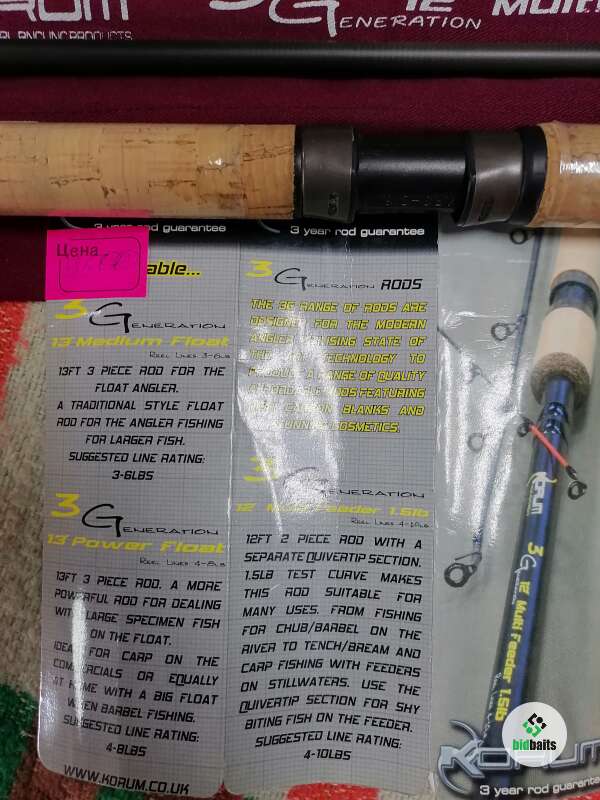 KORUM
3 GENERATION
12' Multi
3 year rod guarantee
3 year rod guarantee
Цена
able...
3 GENERATION
13' Medium Float
Reel Lines 3-6lb
13FT 3 PIECE ROD FOR THE
FLOAT ANGLER.
A TRADITIONAL STYLE FLOAT
ROD FOR THE ANGLER FISHING
FOR LARGER FISH.
SUGGESTED LINE RATING:
3-6LBS
3 GENERATION
13' Power Float
Reel Lines 4-8lb
13FT 3 PIECE ROD. A MORE
POWERFUL ROD FOR DEALING
WITH LARGE SPECIMEN FISH
ON THE FLOAT.
IDEAL FOR CARP ON THE
COMMERCIALS OR EQUALLY
AT HOME WITH A BIG FLOAT
WHEN BARBEL FISHING.
SUGGESTED LINE RATING:
4-8LBS
WWW.KORUM.CO.UK
3 GENERATION RODS
THE 3G RANGE OF RODS ARE
DESIGNED FOR THE MODERN
ANGLER UTILISING STATE OF
THE ART TECHNOLOGY TO
PRODUCE A RANGE OF QUALITY
AFFORDABLE RODS FEATURING
CARBON BLANKS AND
STUNNING COSMETICS.
3 GENERATION
12' Multi Feeder 1.5lb
Reel Lines 4-10lb
12FT 2 PIECE ROD WITH A
SEPARATE QUIVERTIP SECTION.
1.5LB TEST CURVE MAKES
THIS ROD SUITABLE FOR
MANY USES. FROM FISHING
FOR CHUB/BARBEL ON THE
RIVER TO TENCH/BREAM AND
CARP FISHING WITH FEEDERS
ON STILLWATERS. USE THE
QUIVERTIP SECTION FOR SHY
BITING FISH ON THE FEEDER.
SUGGESTED LINE RATING:
4-10LBS
KORUM
3 GENERATION 12' Multi Feeder 1.5lb
bidbaits
KORUM
3 year rod guarantee